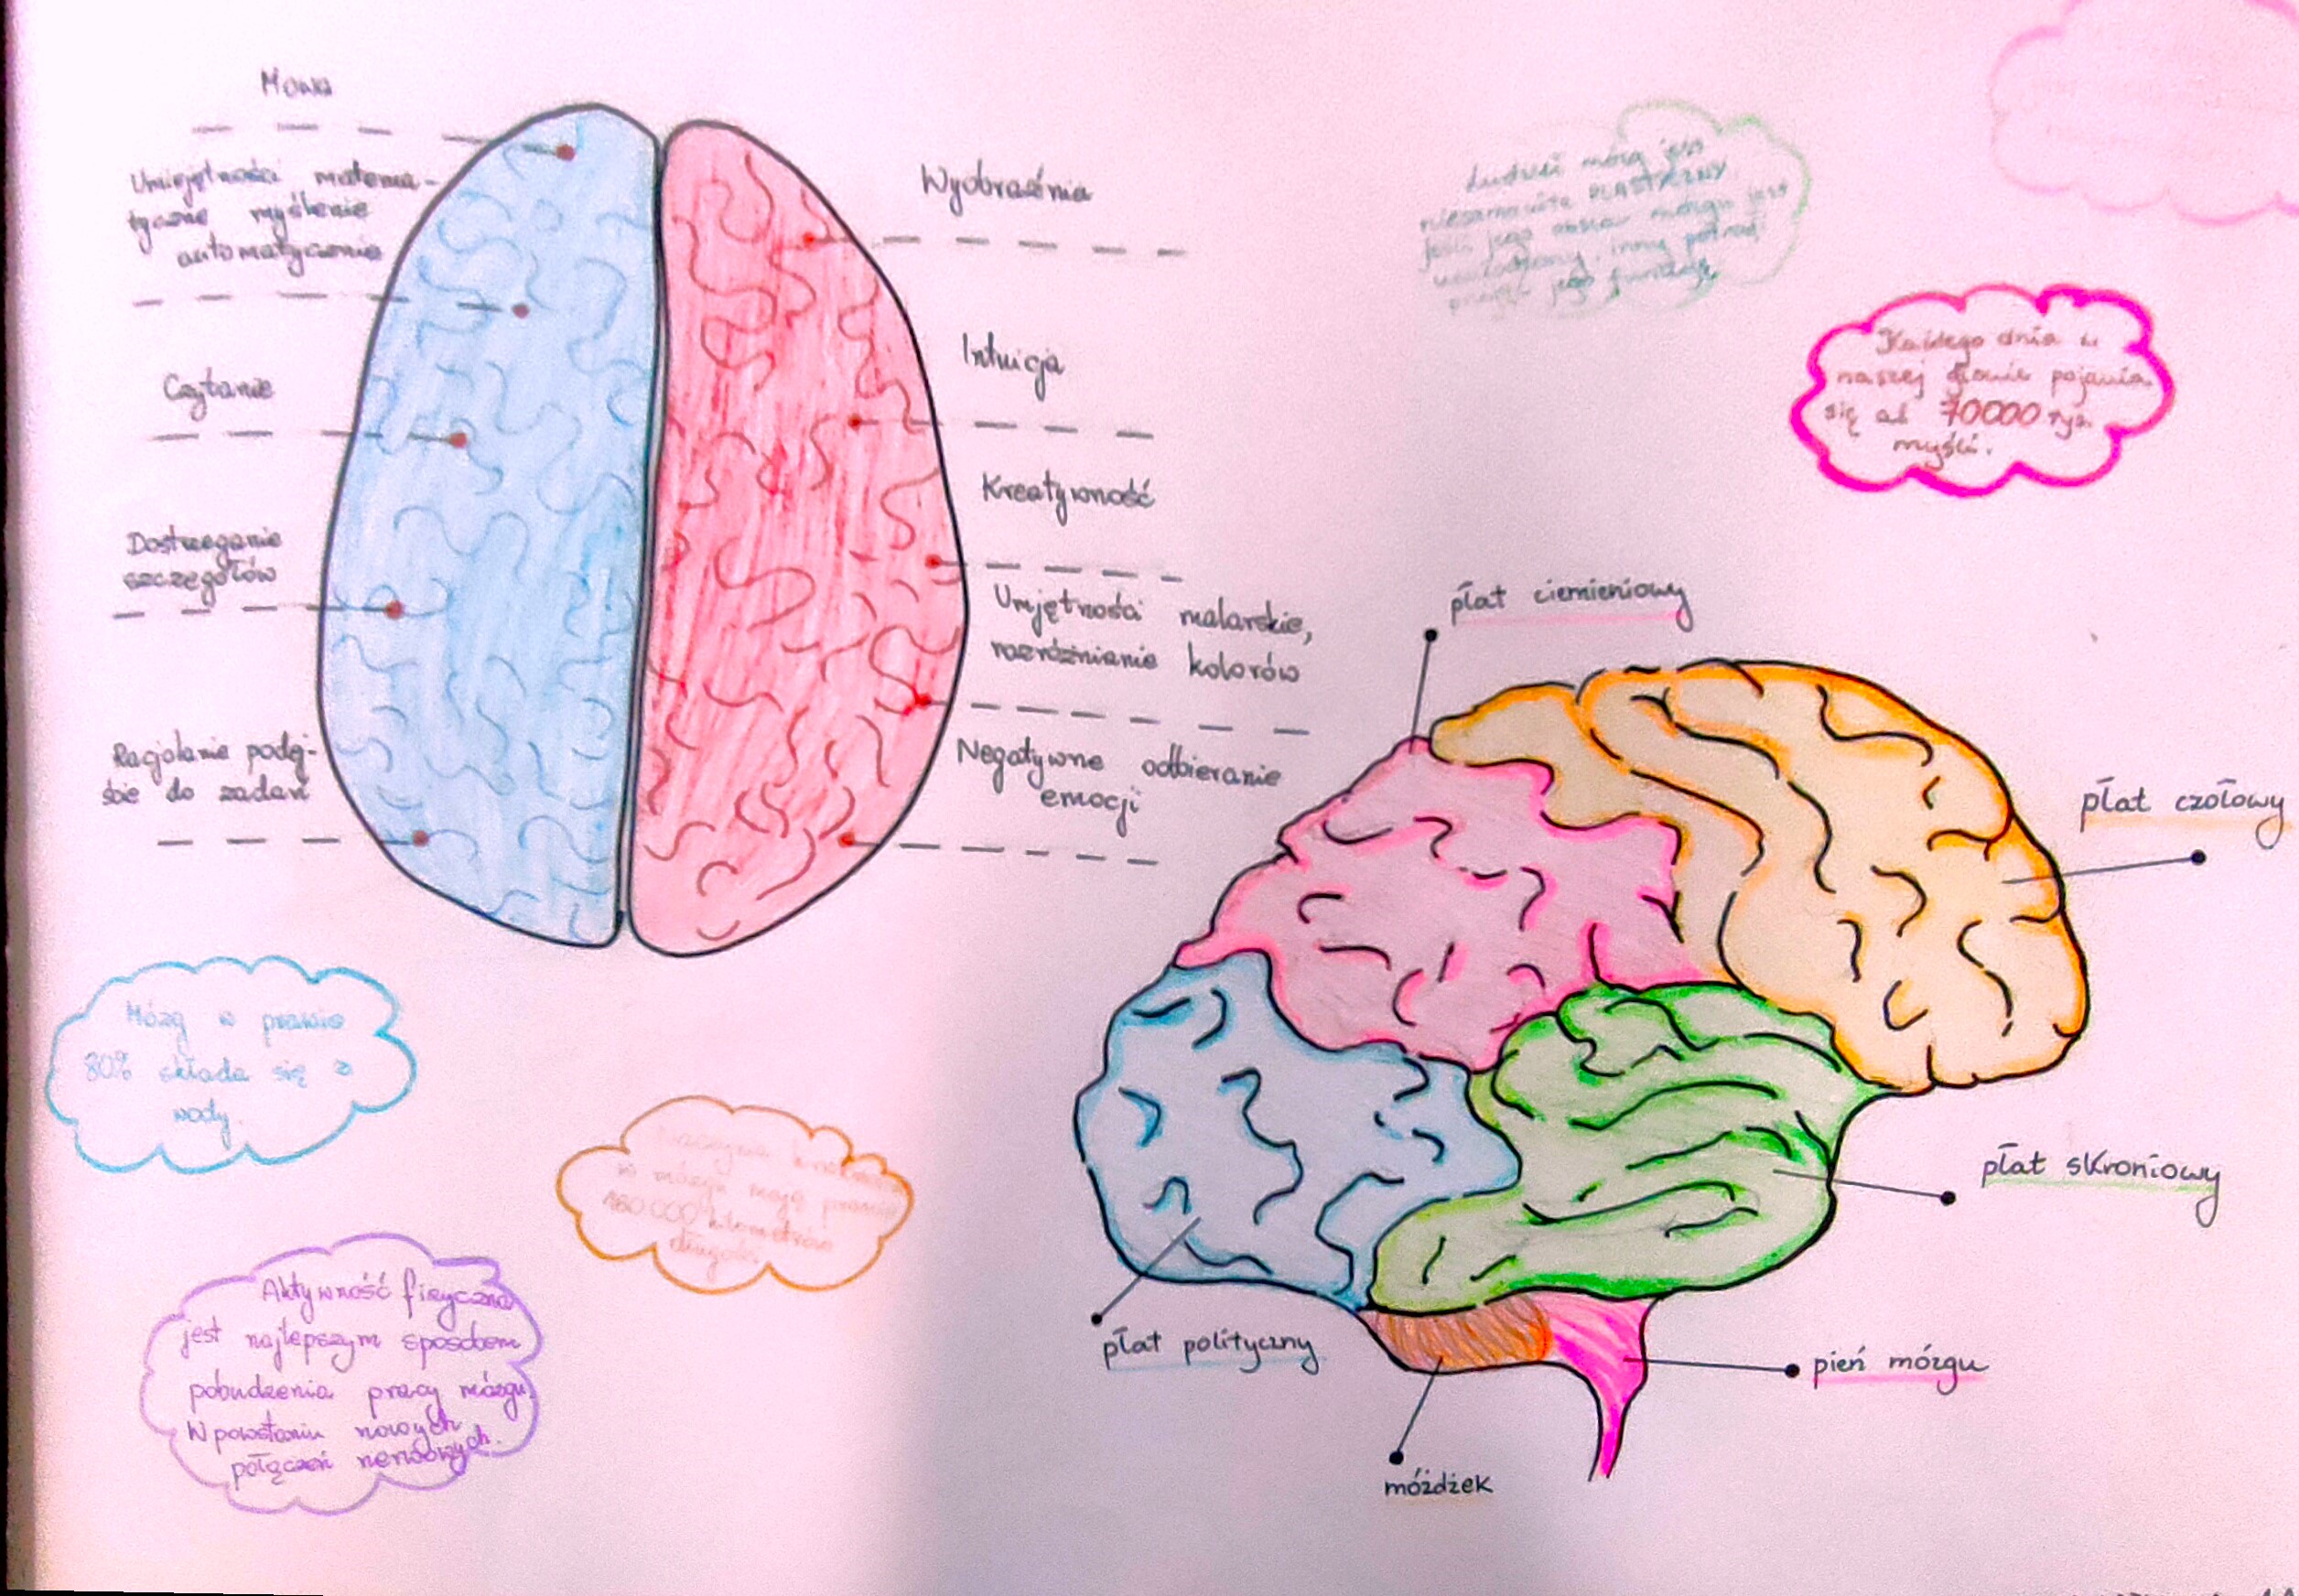 Mowa
Umiejętności matema-
tyczne myślenie
automatycznie
Czytanie
Dostrzeganie
szczegółów
Racjolanie podej-
ście do zadań
Wyobraźnia
Intuicja
Kreatywność
Umjętności malarskie,
rozróżnianie kolorów
Negatywne odbieranie
emocji
Ludzki mózg jest
niesamowicie PLASTYCZNY
jeśli jego obszar mózgu jest
uszkodzony, inny
jego funkcję
Każdego dnia w
naszej głowie pojawia
się aż 70000 tyś.
myśli.
płat ciemieniowy
płat czołowy
płat skroniowy
płat polityczny
pień mózgu
móżdżek
Mózg w prawie
80% składa się z
wody.
w mózgu mają prawie
160.000 kilometrów
długości.
Aktywność fizyczna
jest najlepszym sposobem
pobudzenia pracy mózgu
W powstaniu nowych
połączeń nerwowych.